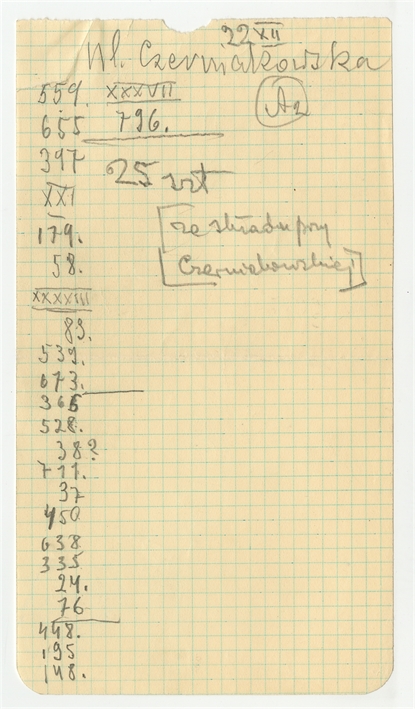 22 XII
Ul. Czerniakowska
559. XXXVII
A2
655 796.
397
25 szt
XXI
179.
[ze składu przy
58.
Czerniakowskiej]
XXXXIII
89.
539.
673.
366
528.
38?
711.
37
450
638
335
24.
76
448.
195
148.